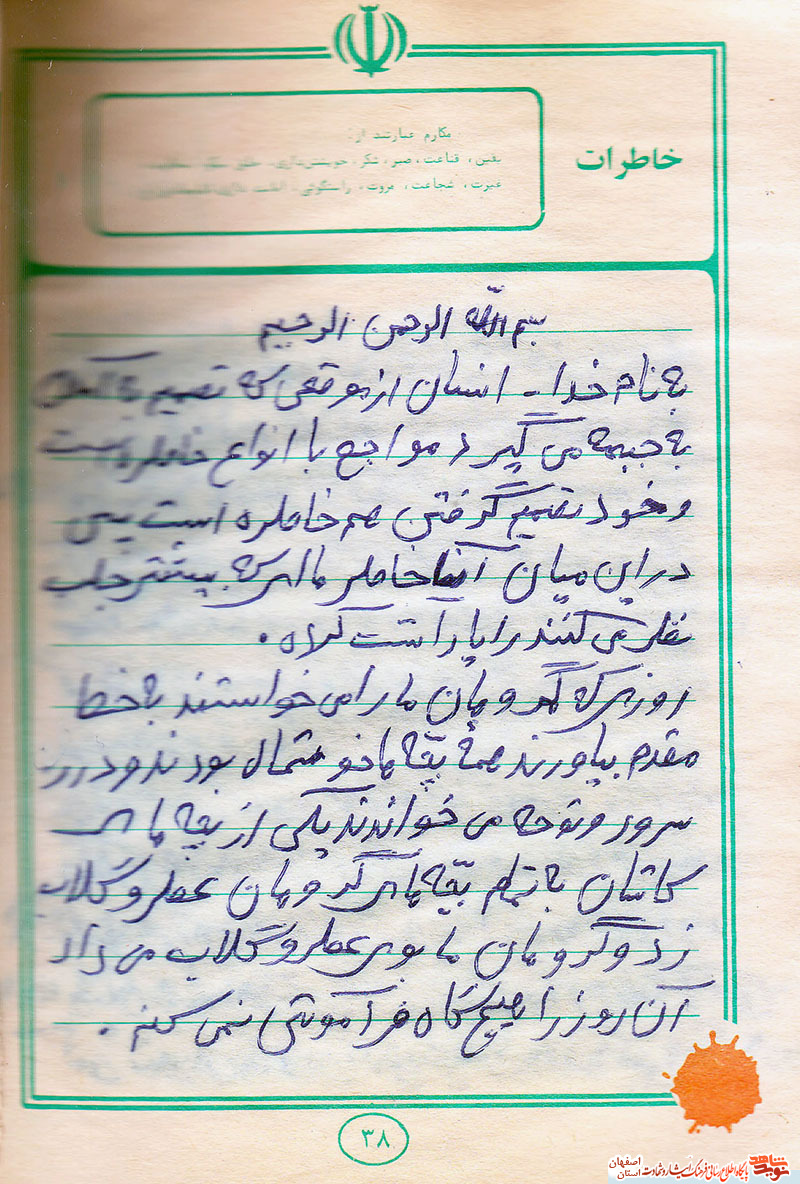 خاطرات
مکارم عبارتند از:
یقین، قناعت، صبر، شکر، خویشتن‌داری، خلق نیکو، سخاوت،
غیرت، شجاعت، مروت، راستگوئی، امانت داری
بسم الله الرحمن الرحیم
به نام خدا - انسان از موقعی که تصمیم به
به جبهه می گیرد مواجع با انواع خاطره است
و خود تصمیم گرفتن هم خاطره است پس
در این میان آنها خاطر هایی که بیشتر جلب
نظر می کنند را یاداشت کرده.
روزی که گردمان ما را می خواستند به خط
مقدم بیاورند همه بچه ها خوشحال بودند و در
سرود و نوحه می خواندند یکی از بچه های
کاشان به تمام بچه های گردمان عطر و گلاب
زد و گردمان ما بوی عطر و گلاب می داد
آن روز را هیچ گاه فرآموش نمی کنم.
۳۸
نوید شاهد
پایگاه اطلاع رسانی فرهنگ ایثار و شهادت استان اصفهان